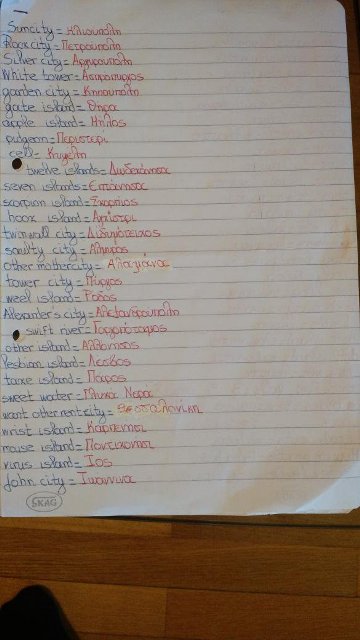 Suncity = Ηλιουπολη
Rockcity = Πετρουπολη
Silver city = Αργυρουπολη
White tower = Ασπροπυργος
garden city = Κηπουπολη
gate island = Θηρα
apple island = Μηλος
pidgeon = Περιστερι
cell = Κυψελη
twelve islands = Δωδεκανησα
seven islands = Επτανησα
scorpion island = Σκορπιος
hoox island = Αγκιστρι
twinwall city = Διδυμοτειχος
saulty city = Αλμυρος
other mothercity =
tower city = Πυργος
weel island = Ροδος
Alexanders city = Αλεξανδρουπολη
swift river = Γοργοποταμος
other island = Αλλονησος
lesbian island = Λεσβος
take island = Παρος
sweet water = Γλυκα Νερα
want other rent city = Θεσσαλονικη
wrist island = Καρπενησι
mouse island = Ποντικονησι
virus island = Ιος
John city = Ιωαννινα
SKAG